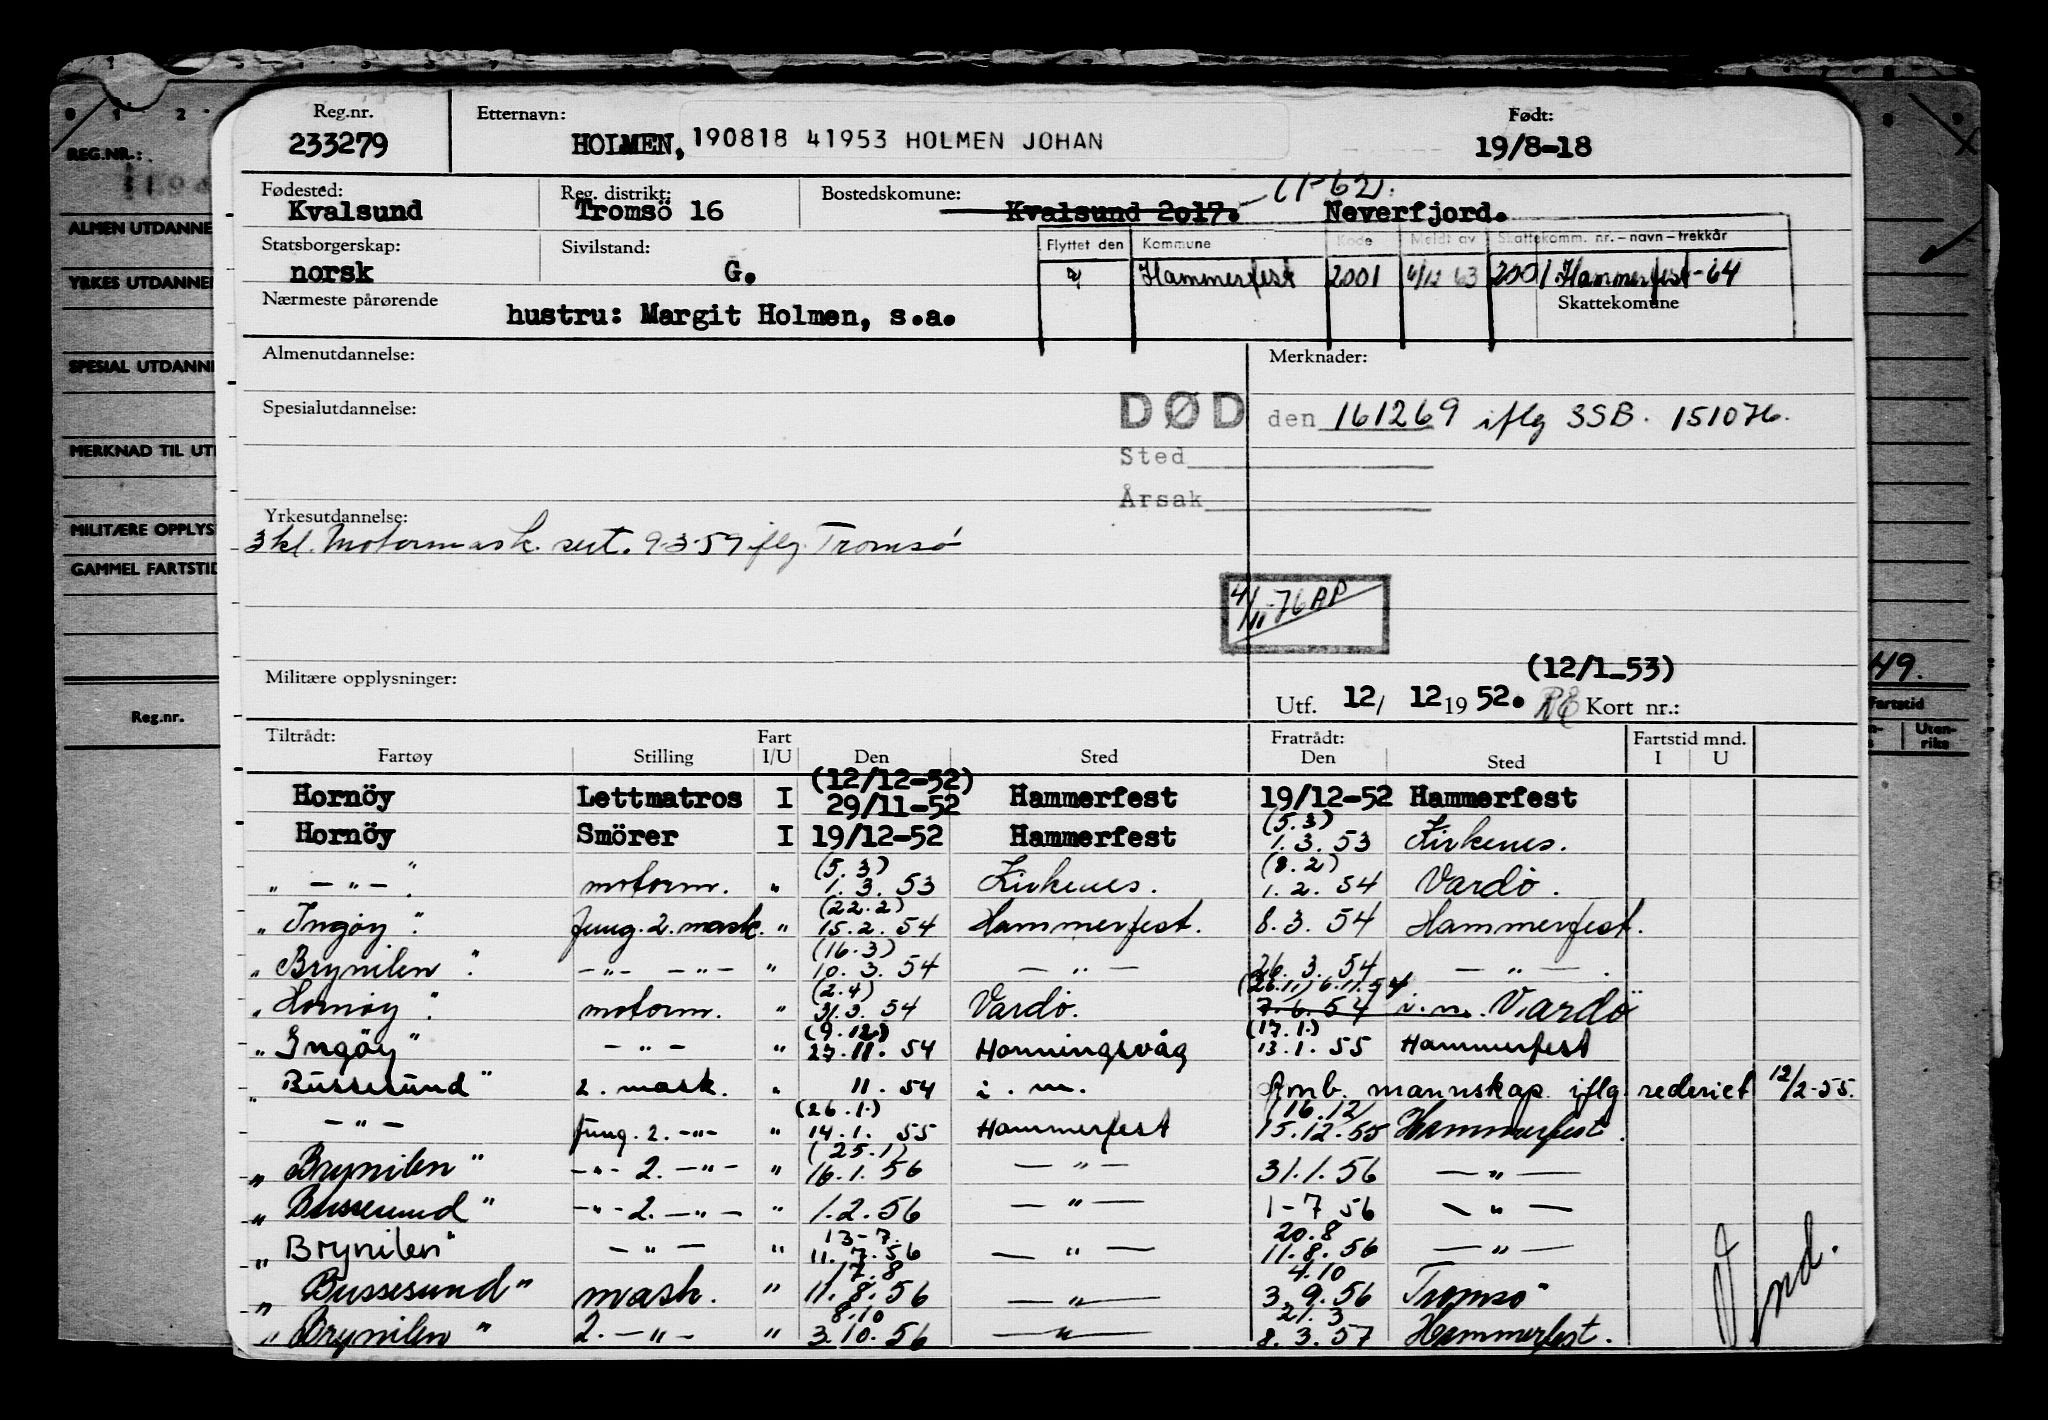 Reg.nr. Etternavn: Født:
233279 HOLMEN, 190818 41953 HOLMEN JOHAN 19/8-18
REG.NR.:
Fødested: Reg. distrikt: Bostedskomune: (1-62).
Kvalsund Tromsö 16 Kvalsund 2017. Neverfjord.
ALMEN UTDANNE
Statsborgerskap: Sivilstand: Flyttet den Kommune Kode Meldt av Skattekomm. nr. – navn – trekkår
norsk G. Hammerfest 2001 6/12 63 2001 Hammerfest-64
YRKES UTDANNE
Nærmeste pårørende Skattekomune
hustru: Margit Holmen, s.a.
Almenutdannelse: Merknader:
SPESIAL UTDANNE
Spesialutdannelse: DØD den 161269 iflg SSB. 151076.
MERKNAD TIL UT
Sted
Årsak
Yrkesutdannelse:
MILITÆRE OPPLYS
3 kl. Motormask. sert. 9-3-57 iflg. Tromsø
GAMMEL FARTSTID
4/11-76 AP
Militære opplysninger: (12/1_53) 49.
Utf. 12/ 12 19 52. Kort nr.:
Reg.nr. Fartstid
Tiltrådt: Fart Fratrådt: Fartstid mnd. Uten-
Fartøy Stilling I/U Den Sted Den Sted I U riks
(12/12-52)
Hornöy Lettmatros I 29/11-52 Hammerfest 19/12-52 Hammerfest
Hornöy Smörer I 19/12-52 Hammerfest (5.3) 1.3.53 Kirkenes.
„ — „ — " motorm. „ (5.3) 1.3.53 Kirkenes. (8.2) 1.2.54 Vardø.
„ Ingøy " fung. 2. mask. „ (22.2) 15.2.54 Hammerfest. 8.3.54 Hammerfest.
„ Brynilen " -„- -„- „ (16.3) 10.3.54 — „ — 26.3.54 — „ —.
„ Hornøy " motorm. „ (2.4) 31.3.54 Vardø. (26.11) 6.11.54 7.6.54 i.m. Vardö
„ Ingöy " - „ - „ (9.12.) 27.11.54 Honningsvåg (17.1.) 13.1.55 Hammerfest
„ Bussesund " 2. mask. „ 11.54 i.m. Omb. mannskap. iflg rederiet 12/2-55.
— „ — fung. 2. -„- „ (26.1.) 14.1.55 Hammerfest (16.12) 15.12.55 Hammerfest.
„ Brynilen " -„- 2. -„- „ (25.1) 16.1.56 — „ — 31.1.56 — „ —
„ Bussesund " -„- 2. -„- „ 1.2.56 — „ — 1-7 56 — „ —
„ Brynilen " - „ - „ 13-7. 11.7.56 — „ — 20.8 11.8.56 — „ —
„ Bussesund " mask. „ 17.8 11.8.56 — „ — 4.10 3.9.56 Tromsø
„ Brynilen " 2. -„- „ 8.10 3.10.56 — „ — 21.3 8.3.57 Hammerfest.